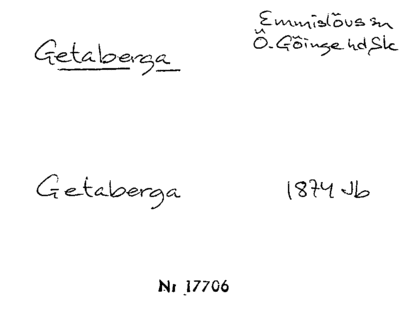 Getaberga
Emmislövs sn
Ö. Göinge hd Sk
Getaberga
1874 Jb
Nr 17706